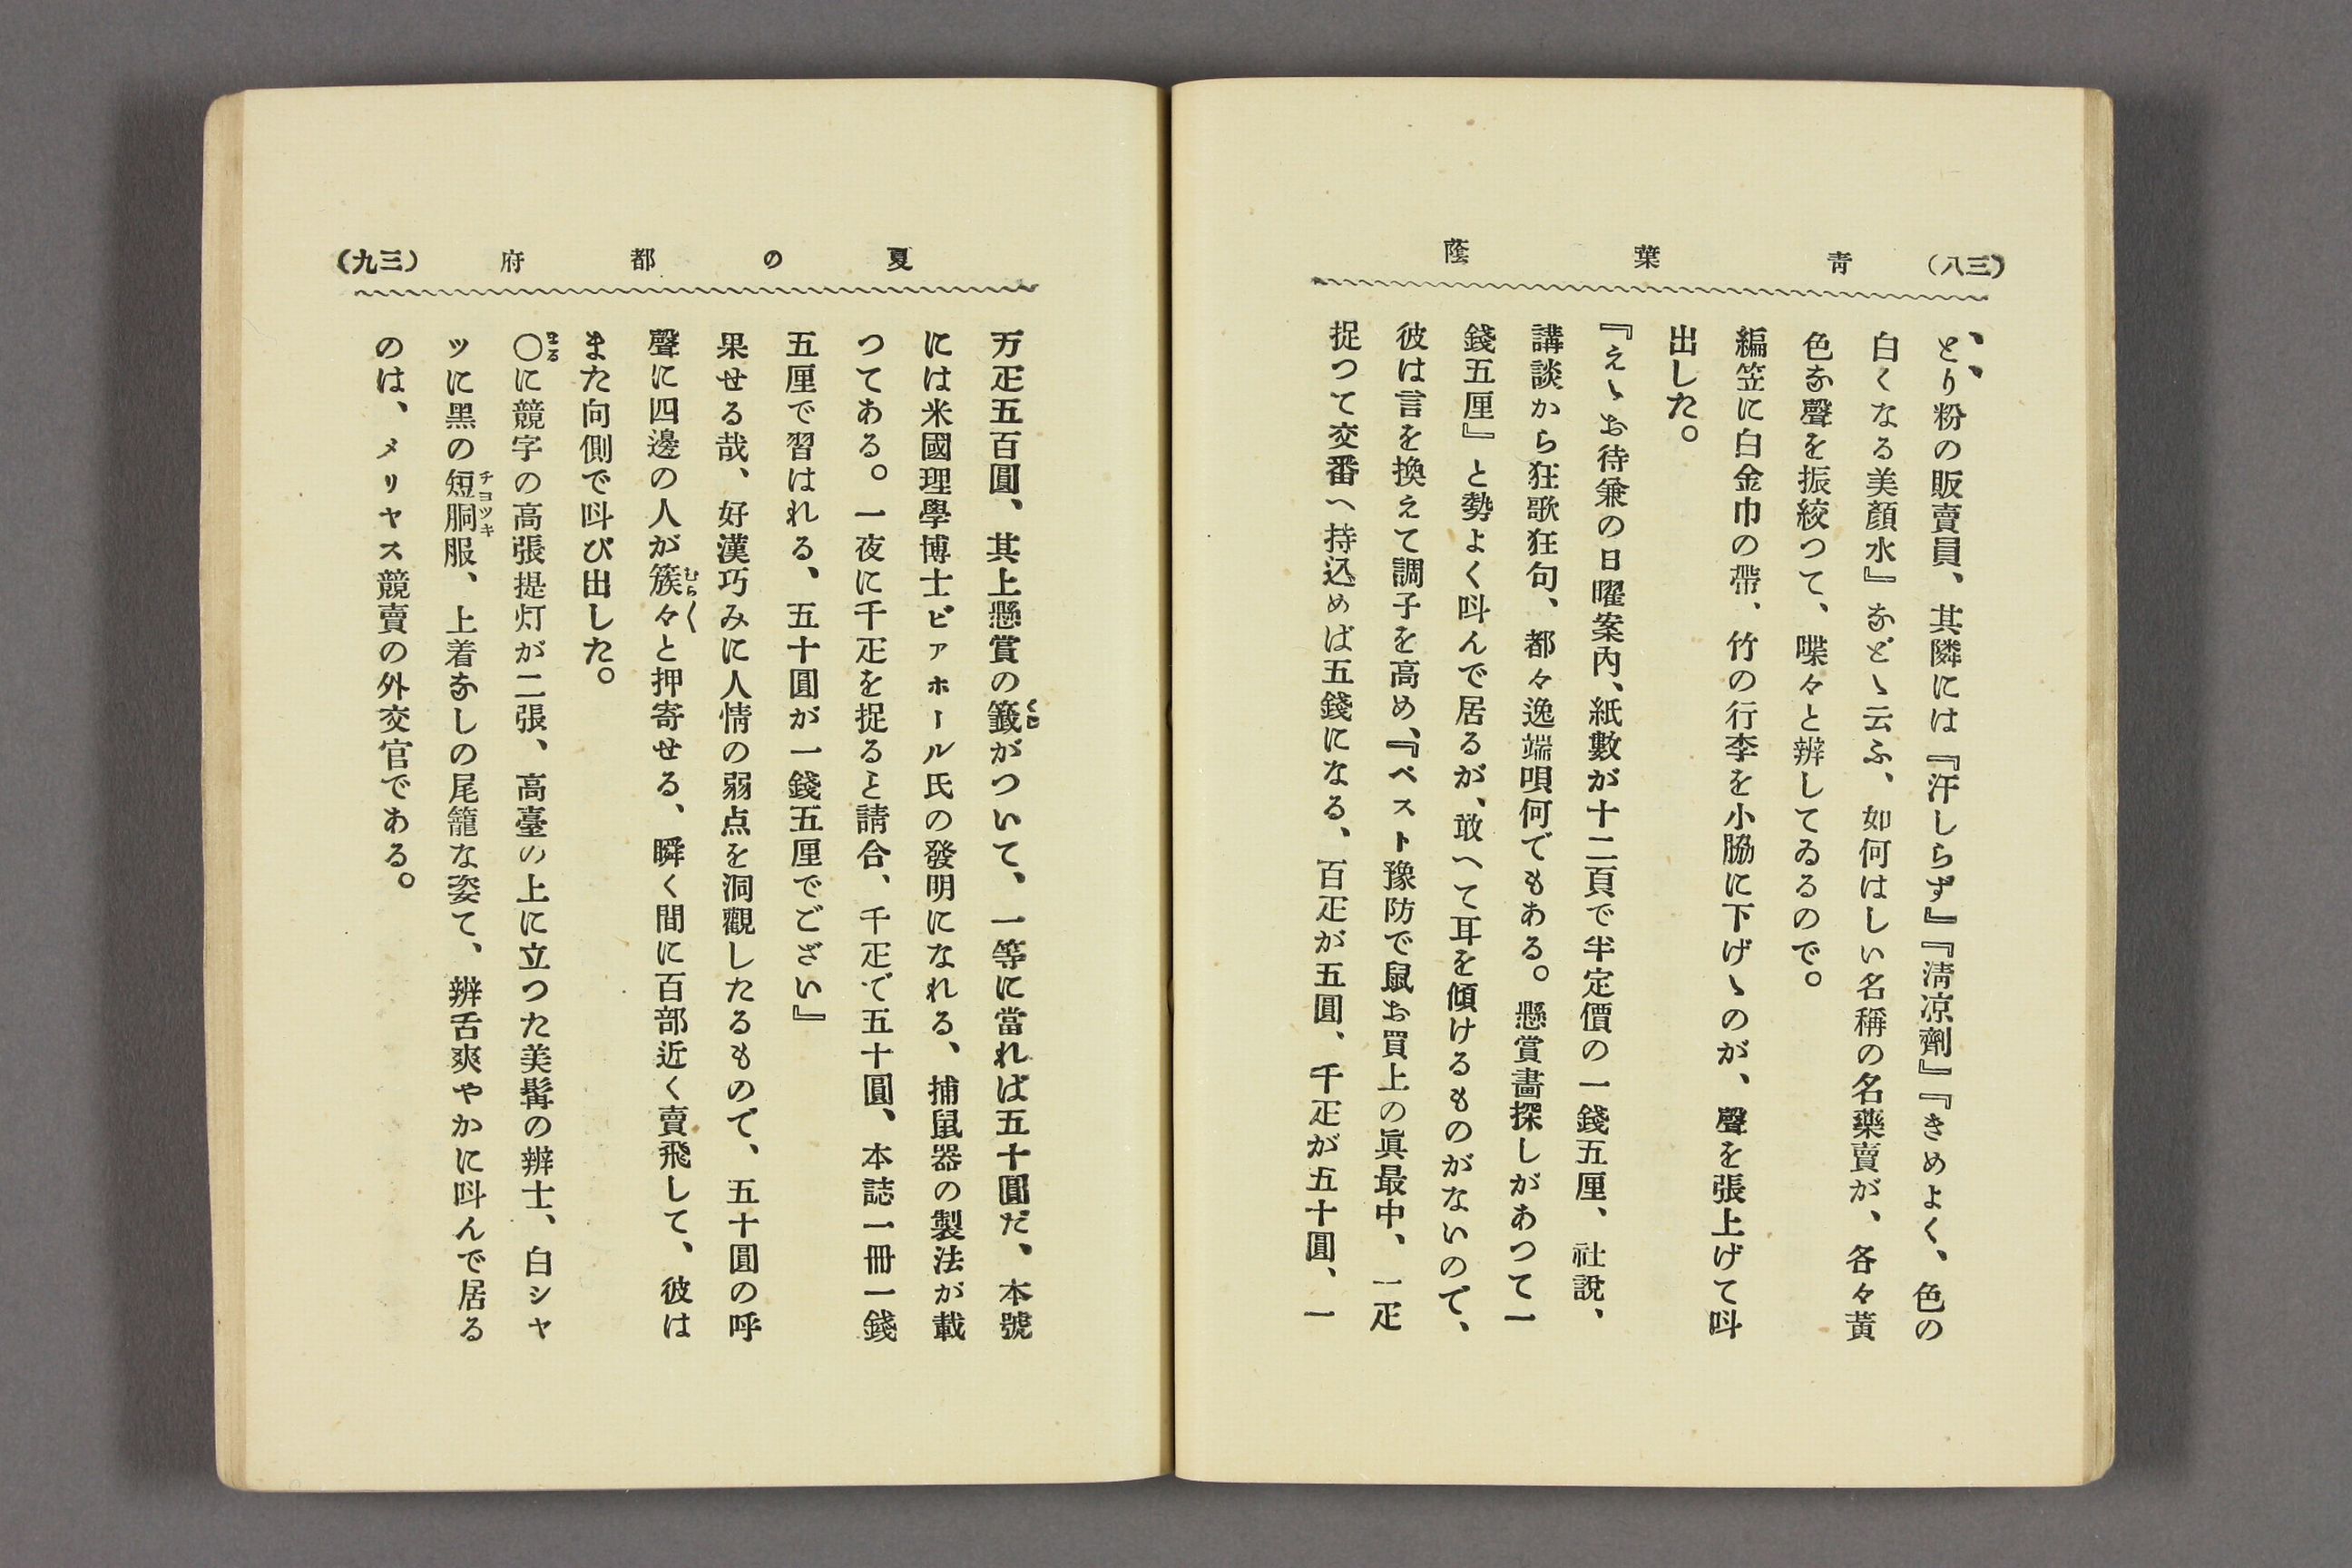 （三八）　青　葉　蔭
とり粉の販賣員、其隣には『汗しらず』『淸凉劑』『きめよく、色の
白くなる美顏水』などゝ云ふ、如何はしい名稱の名藥賣が、各々黃
色な聲を振絞つて、喋々と辨してゐるので。
編笠に白金巾の帶、竹の行李を小脇に下げゝのが、聲を張上げて呌
出した。
『えゝお待兼の日曜案內、紙數が十二頁で半定價の一錢五厘、社說、
講談から狂歌狂句、都々逸端唄何でもある。懸賞畵探しがあつて一
錢五厘』と勢よく呌んで居るが、敢へて耳を傾けるものがないので、
彼は言を換えて調子を高め、『ペスト豫防で鼠お買上の眞最中、一疋
捉つて交番へ持込めば五錢になる、百疋が五圓、千疋が五十圓、一
夏　の　都　府　（三九）
万疋五百圓、其上懸賞の籤がついて、一等に當れば五十圓だ、本號
には米國理學博士ビァホール氏の發明になれる、捕鼠器の製法が載
つてある。一夜に千疋を捉ると請合、千疋で五十圓、本誌一冊一錢
五厘で習はれる、五十圓が一錢五厘でござい』
果せる哉、好漢巧みに人情の弱点を洞觀したるもので、五十圓の呼
聲に四邊の人が簇々と押寄せる、瞬く間に百部近く賣飛して、彼は
また向側で呌び出した。
〇に競字の高張提灯が二張、高臺の上に立つた美髯の辨士、白シャ
ツに黑の短胴服、上着なしの尾籠な姿て、辨舌爽やかに呌んで居る
のは、メリヤス競賣の外交官である。